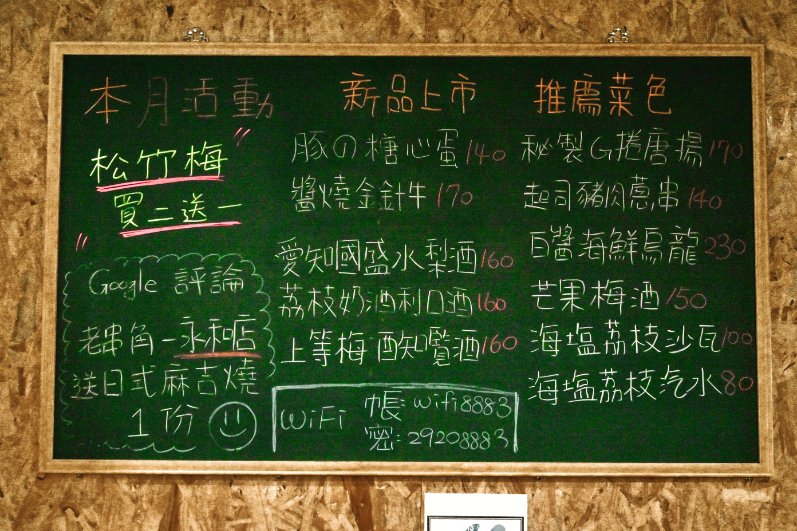 本月活動
松竹梅
買二送一
Google 評論
老串角-永和店
送日式麻吉燒
1份
新品上市
豚の糖心蛋 140
醬燒金針牛 170
愛知國盛水梨酒 160
荔枝奶酒利口酒 160
上等梅酣知覽酒 160
WiFi 帳: wifi8883
密: 29208883
推薦菜色
秘製G捲唐揚 170
起司豬肉蔥串 140
白醬海鮮烏龍 230
芒果梅酒 150
海塩荔枝沙瓦 100
海塩荔枝汽水 80